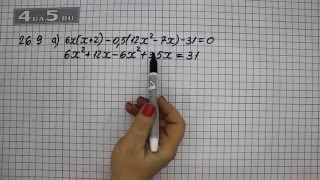 4DA5.RU
26.9 а) 6x(x+2)-0,5(12x²-7x)-31=0
6x²+12x-6x²+3,5x=31